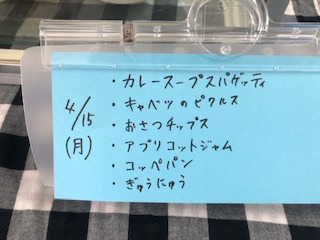 4/15
(月)
・カレースープスパゲッティ
・キャベツのピクルス
・おさつチップス
・アプリコットジャム
・コッペパン
・ぎゅうにゅう